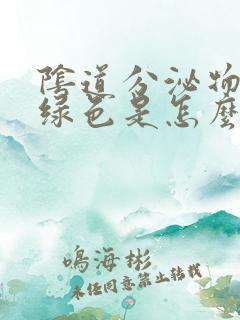 陰道分泌物
绿色是怎麽
鳴海彬
未经同意禁止转载